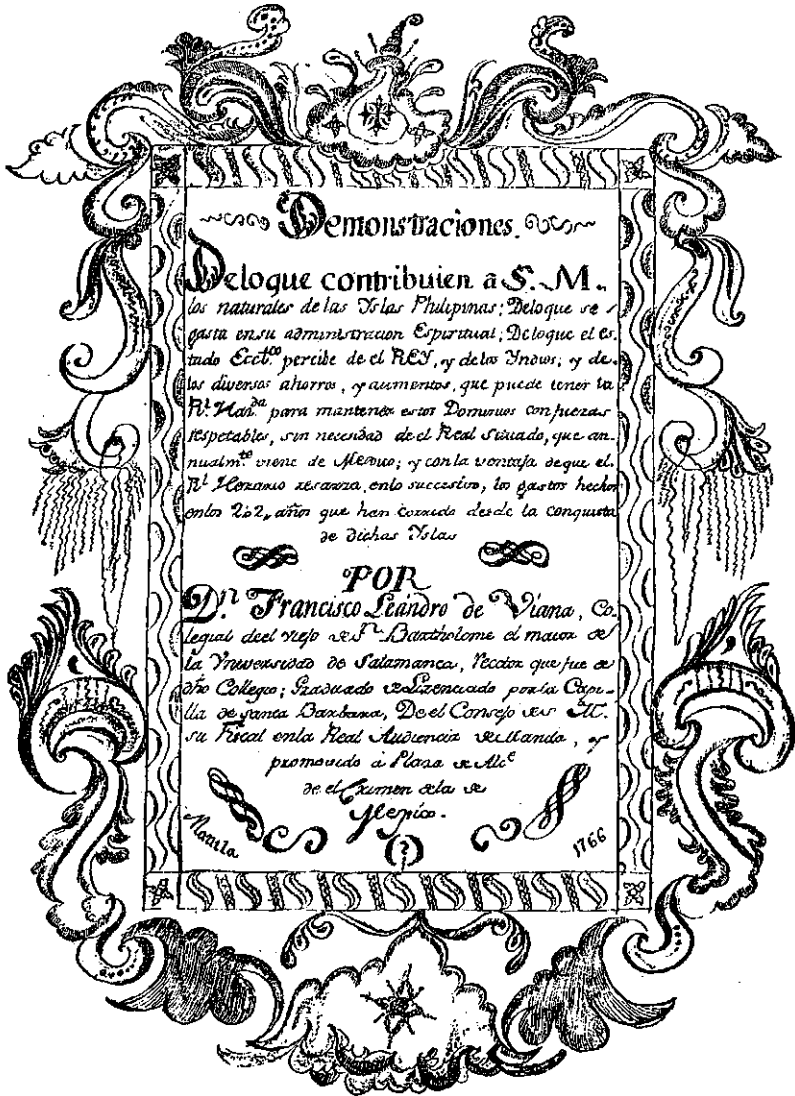 Demonstraciones.
De loque contribuien â S. M.
los naturales de las Yslas Philipinas; De loque se
gasta en su administracion Espiritual; De loque el es-
tado Ecct.co percibe de el REY, y de los Yndios; y de
los diversos ahorros, y aumentos, que puede tener la
Rl. Haz.da para mantener estos Dominios con fuerzas
respetables, sin necesidad de el Real Situado, que an-
nualm.te viene de Mexico; y con la ventaja de que el
Rl. Herario resarza, en lo succesivo, los gastos hechos
en los 202, años que han corrido desde la conquista
de dichas Yslas
POR
D.n Francisco Leandro de Viana, Co-
legial de el viejo de S.n Bartholome el maior de
la Vniversidad de Salamanca, Rector que fue de
dho Collegio; Graduado de Lizenciado por la Capi-
lla de Santa Barbara, De el Consejo de S. M.
su Fiscal en la Real Audiencia de Manila, y
promovido â Plaza de Alc.e
de el Crimen de la de
Mexico.
Manila
1766